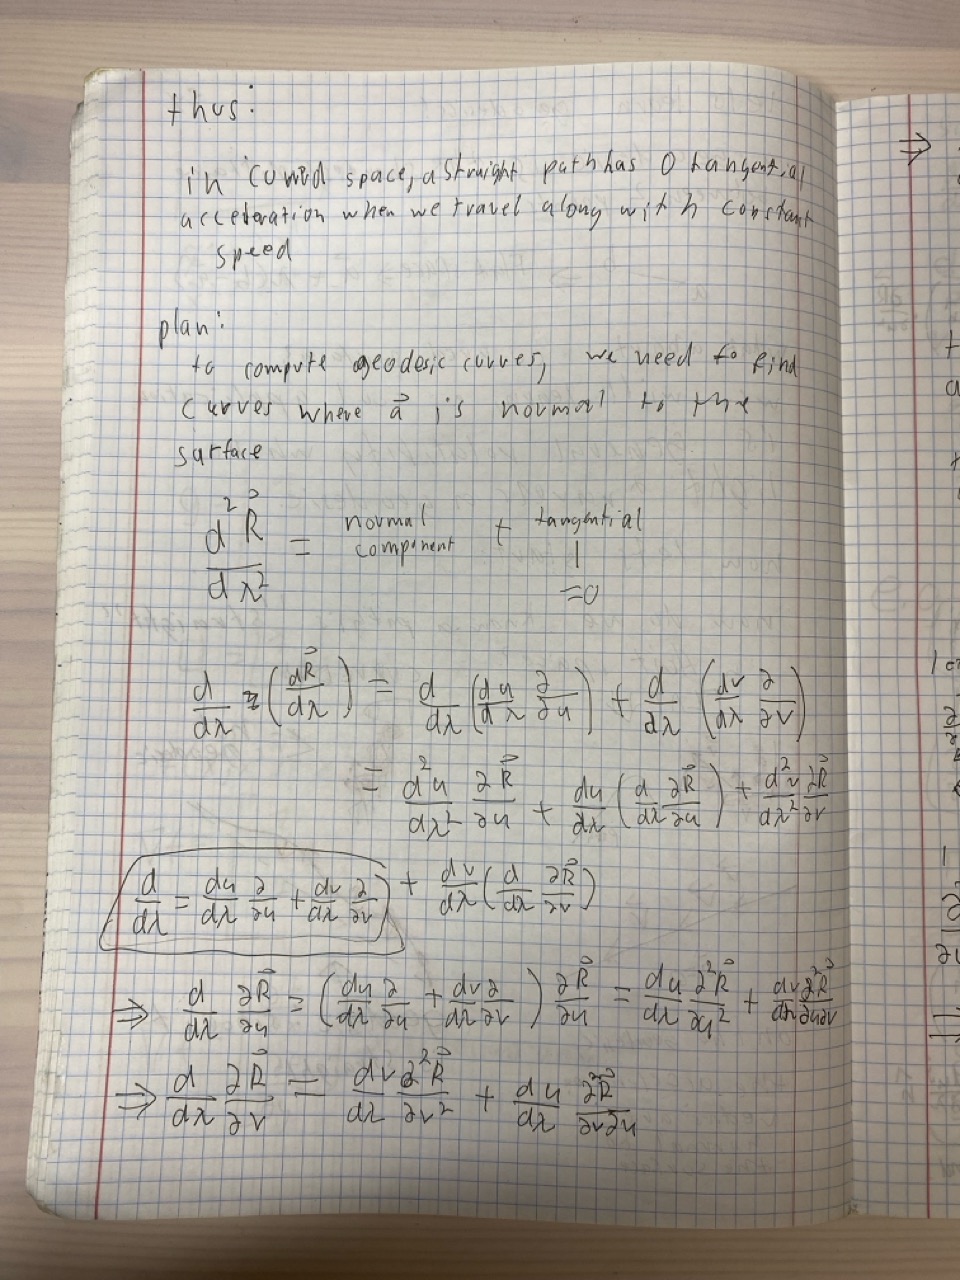 thus:
in curved space, a straight path has 0 tangential
acceleration when we travel along with constant
speed
plan:
to compute geodesic curves, we need to find
curves where a⃗ is normal to the
surface
d²R⃗/dλ² = normal component + tangential
=0
d/dλ (dR⃗/dλ) = d/dλ (du/dλ ∂/∂u) + d/dλ (dv/dλ ∂/∂v)
= d²u/dλ² ∂R⃗/∂u + du/dλ (d/dλ ∂R⃗/∂u) + d²v/dλ² ∂R⃗/∂v
d/dλ = du/dλ ∂/∂u + dv/dλ ∂/∂v
+ dv/dλ (d/dλ ∂R⃗/∂v)
⇒ d/dλ ∂R⃗/∂u = (du/dλ ∂/∂u + dv/dλ ∂/∂v) ∂R⃗/∂u = du/dλ ∂²R⃗/∂u² + dv/dλ ∂²R⃗/∂u∂v
⇒ d/dλ ∂R⃗/∂v = dv/dλ ∂²R⃗/∂v² + du/dλ ∂²R⃗/∂v∂u
⇒